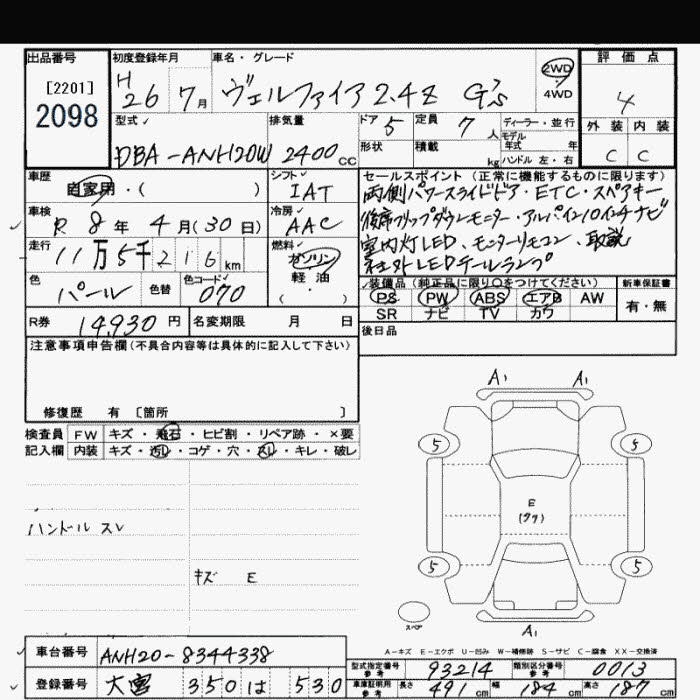 出品番号 初度登録年月 車名・グレード 評価点
[2201]
2098
H 26 7月 ヴェルファイア 2.4Z G's 2WD・4WD 4
型式 排気量 ドア 5 定員 7人 ディーラー・並行 外装 内装
モデル年式 年
DBA-ANH20W 2400cc 形状 積載 kg ハンドル 左・右 C C
車歴 自家用・( ) シフト IAT セールスポイント(正常に機能するものに限ります)
両側パワースライドドア・ETC・スペアキー
車検 R 8年 4月(30日) 冷房 AAC 後席フリップダウンモニター・アルパイン10インチナビ
走行 11万5千216km 燃料 ガソリン・軽油・( ) 室内灯LED、モニターリモコン、取説
社外LEDテールランプ
色 パール 色替 色コード 070 装備品(純正品に限り○をつけてください) 新車保証書
PS PW ABS エアB AW 有・無
SR ナビ TV カワ
R券 14,930円 名変期限 月 日 後日品
注意事項申告欄(不具合内容等は具体的に記入して下さい)
修復歴 有 〔箇所 〕
検査員 FW キズ・飛石・ヒビ割・リペア跡・×要
記入欄 内装 キズ・汚レ・コゲ・穴・スレ・キレ・破レ
A1 A1
5 5
ハンドル スレ
E
キズ E
5 5
スペア
A1
A-キズ E-エクボ U-凹み W-補修跡 S-サビ C-腐食 XX-交換済
車台番号 ANH20-8344338
型式指定番号 参考 93214 類別区分番号 参考 0013
登録番号 大宮 350 は 530
車庫証明用 参考 長さ 491cm 幅 184cm 高さ 187cm